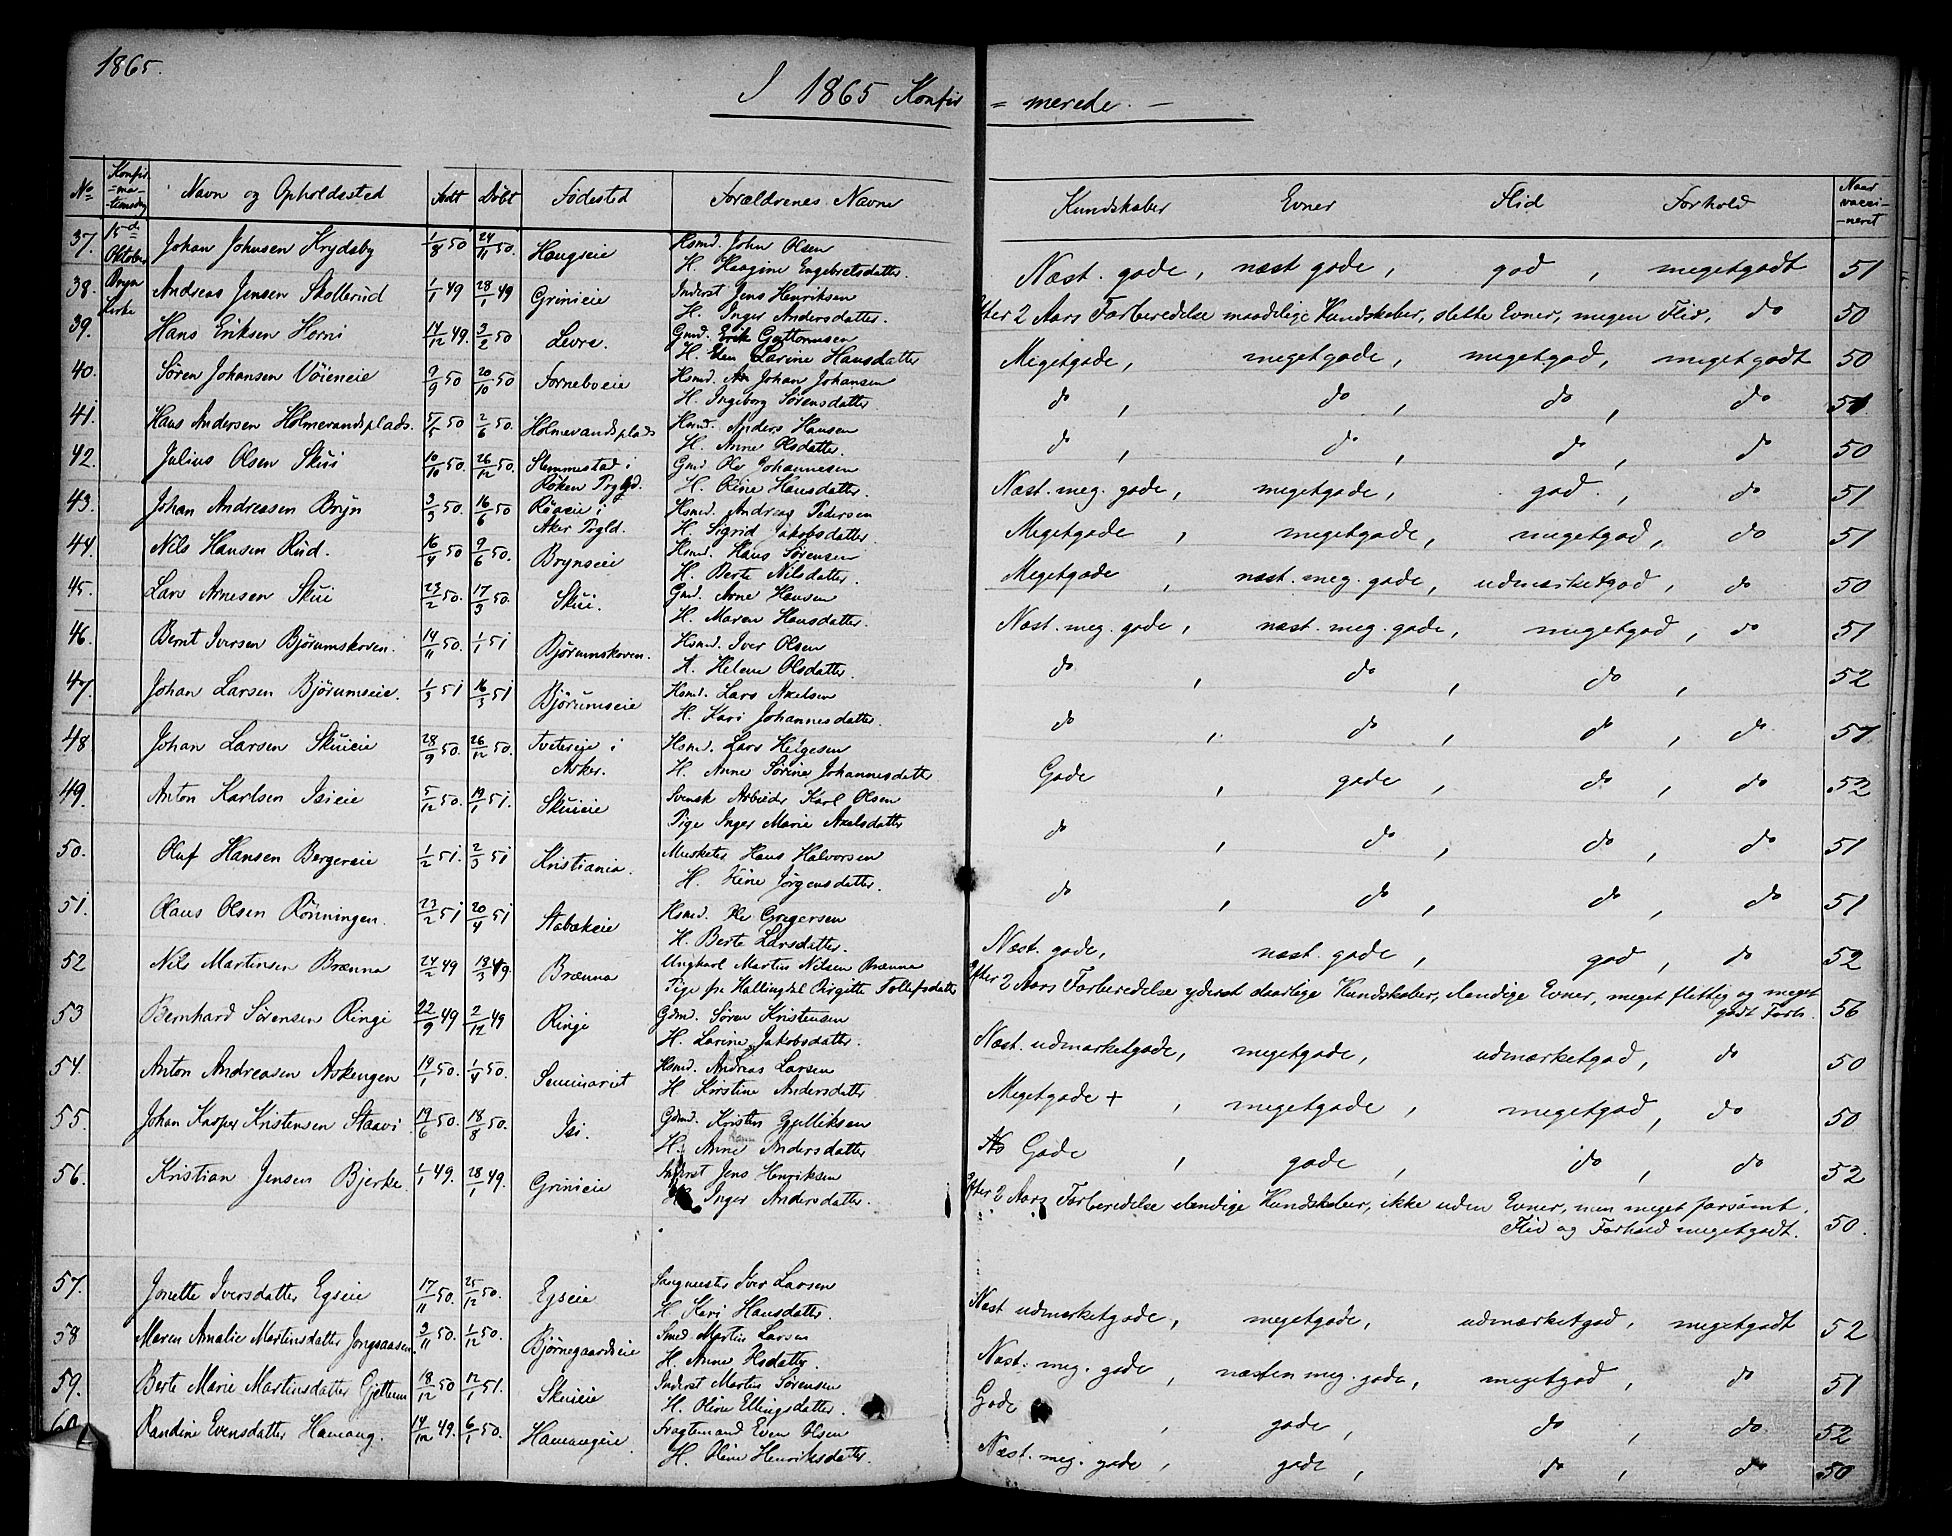 1865.
I 1865 Konfir = merede. —
No Konfir=ma=tionsdag Navn og Opholdssted Født Døbt Fødested Forældrenes Navne Kundskaber Evner Flid Forhold Naar vacci-neret
37. 15de Oktober Johan Johnsen Krydsby 1/8 50 24/11 50. Haugseie Hsmd. John Olsen
H. Haagine Engebretsdatter. Næst. gode, næst gode, god, megetgodt 51
38. Bryn Kirke Andreas Jensen Skollerud 1/1 49 28/1 49 Grinieie Inderst Jens Henriksen
H. Inger Andersdatter. Efter 2 Aars Forberedelse maadelige Kundskaber, slette Evner, megen Flid, do 50
39. Hans Eriksen Horni 14/12 49. 3/2 50 Levre. Gmd. Erik Guttormsen
H. Elen Larine Hansdatter Megetgode, megetgode, megetgod, megetgodt 50
40. Søren Johansen Vøieneie 9/9 50 20/10 50 Forneboeie Hsmd. Johan Johansen
H. Ingeborg Sørensdatter. do, do, do, do 51.
41. Hans Andersen Holmevandsplads. 5/5 50 2/6 50. Holmevandsplads Hsmd. Anders Hansen
H. Anne Olsdatter. do, do, do, do 50
42. Julius Olsen Skui 10/10 50. 26/12 50. Slemmestad i Røken Prgld. Gmd. Ole Johannesen
H. Oline Hansdatter. Næst. meg. gode, megetgode, god., do 51
43. Johan Andreasen Bryn 3/3 50. 16/6 50 Røaeie i Aker Prgld. Hsmd. Andreas Pedersen
H. Sigrid Jakobsdatter. Megetgode, megetgode, megetgod, do 51
44. Nils Hansen Rud. 16/4 50 9/6 50. Brynseie Hsmd. Hans Sørensen
H. Berte Nilsdatter. Megetgode, næst. meg. gode, udmærketgod, do 50
45. Lars Arnesen Skui 23/2 50. 17/3 50. Skui. Gmd. Arne Hansen
H. Maren Hansdatter. Næst. meg. gode, næst. meg. gode, megetgod, do 51
46. Bernt Iversen Bjørumskoven. 14/11 50. 1/1 51 Bjørumskoven. Hsmd. Iver Olsen
H. Helene Olsdatter. do, do, do, 52
47. Johan Larsen Bjørumseie. 1/3 51 16/3 51 Bjørumseie Hsmd. Lars Axelsen
H. Kari Johannesdatter. do, do, do, do. 51
48 Johan Larsen Skuieie 28/9 50. 26/12 50. Tvetereie i Asker. Hsmd. Lars Helgesen
H. Anne Sørine Johannesdatter Gode, gode, do, do 52
49. Anton Karlsen Isieie 5/12 50. 19/1 51. Skuieie Svensk Arbeider Karl Olsen
Pige Inger Marie Axelsdatter do, do, do, do 51
50. Oluf Hansen Bergereie 1/2 51. 2/3 51 Kristiania. Musketer Hans Halvorsen
H. Jørgensdatter. do, do, do, do 51
51. Claus Olsen Rønningen. 23/2 51 20/4 51 Stabækeie Hsmd. Ole Gregersen
H. Berte Larsdatter. Næst. gode, næst. gode, god, do 52
52 Nils Martinsen Brænna 24/2 49 13/3 49. Brænna Ungkarl Martin Nilsen Brænna
Pige fra Hallingdal Birgitte Tollefsdatter Efter 2 Aars Forberedelse yderst daarlige Kundskaber, elendige Evner, meget flittig og meget godt Forh. 56
53 Bernhard Sørensen Ringi 22/9 49 2/12 49 Ringi Gdmd. Søren Kristensen
H. Larine Jakobsdatter. Næst. udmærketgode, megetgode, udmærketgod, do 50
54. Anton Andreasen Askengen 19/1 50. 1/4 50. Seminariet Hsmd. Andreas Larsen
H. Kirstine Andersdatter. Megetgode +, megetgode, megetgod, do 50
55. Johan Kasper Kristensen Staavi 19/6 50. 18/8 50. Isi. Gdmd. Kristen Gjulliksen
H. Anne Andersdatter Gode, gode, do, do 52
56. Kristian Jensen Bjerke. 1/1 49. 28/1 49. Grinieie Inderst Jens Henriksen
H. Inger Andersdatter. Efter 2 Aars Forberedelse elendige Kundskaber, ikke uden Evner, men meget forsømt.
Flid og Forhold megetgodt. 50.
57. Jonette Iversdatter Egseie 17/11 50. 25/12 50. Egseie Sagmester Iver Larsen
H. Kari Hansdatter. Næst udmærketgode, megetgode, udmærketgod, megetgodt 52
58 Maren Amalie Martinsdatter Jongsaasen. 3/11 50. 1/12 50. Bjørnegaardseie Smed. Martin Larsen
H. Anne Nsdatter. Næst. meg. gode, næsten meg. gode, megetgod, do 51
59. Berte Marie Martinsdatter Gjettum 18/12 50 12/1 51. Skuieie Inderst Martin Sørensen
H. Oline Ellingsdatter. Gode, gode, do, do. 52
60. Randine Evensdatter Hamang. 14/12 49. 6/1 50. Hamangeie. Fragtemand Even Olsen
H. Oline Henriksdatter. Næst. meg. gode, gode, do, do 50